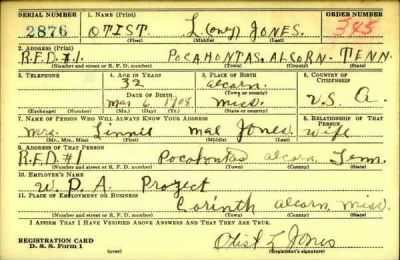 SERIAL NUMBER 1. NAME (Print) ORDER NUMBER
2876 OTIST. L (only) JONES. 345
(First) (Middle) (Last)
2. ADDRESS (Print)
R.F.D. #1. POCAHONTAS, ALCORN. TENN.
(Number and street or R. F. D. number) (Town) (County) (State)
3. TELEPHONE 4. AGE IN YEARS 5. PLACE OF BIRTH 6. COUNTRY OF CITIZENSHIP
32 Alcorn
DATE OF BIRTH (Town or county)
Mar 6 1908 Miss. U.S. A.
(Exchange) (Number) (Mo.) (Day) (Yr.) (State or country)
7. NAME OF PERSON WHO WILL ALWAYS KNOW YOUR ADDRESS 8. RELATIONSHIP OF THAT PERSON
Mrs. Linnie Mae Jones wife
(Mr., Mrs., Miss) (First) (Middle) (Last)
9. ADDRESS OF THAT PERSON
R.F.D. #1 Pocahontas Alcorn, Tenn.
(Number and street or R. F. D. number) (Town) (County) (State)
10. EMPLOYER'S NAME
W. P. A. Project
11. PLACE OF EMPLOYMENT OR BUSINESS
Corinth Alcorn, Miss.
(Number and street or R. F. D. number) (Town) (County) (State)
I AFFIRM THAT I HAVE VERIFIED ABOVE ANSWERS AND THAT THEY ARE TRUE.
REGISTRATION CARD
D. S. S. Form 1 (over) Otist L Jones
(Registrant's signature)